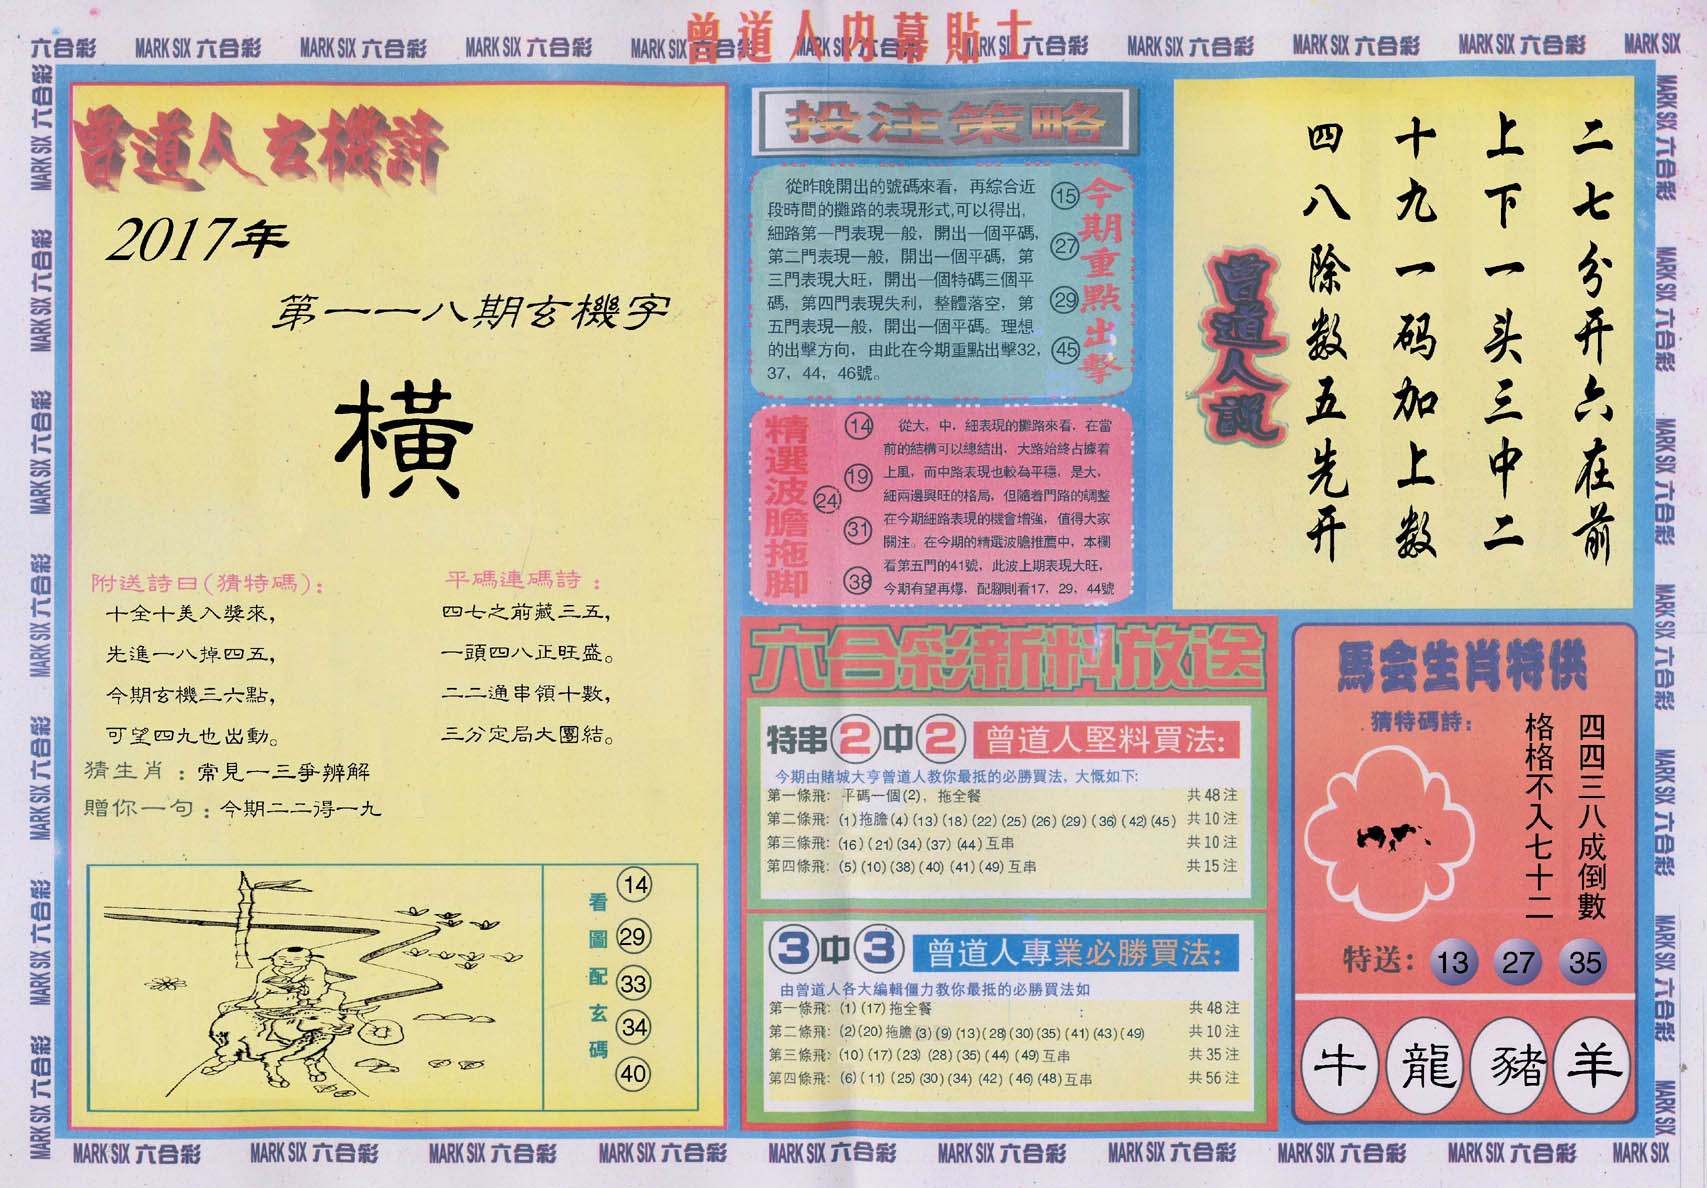 曾道人内幕貼士
六合彩 MARK SIX 六合彩 MARK SIX 六合彩 MARK SIX 六合彩 MARK SIX 六合彩 MARK SIX 六合彩 MARK SIX 六合彩 MARK SIX 六合彩 MARK SIX 六合彩 MARK SIX 六合彩 MARK SIX
曾道人玄機詩
2017年
第一一八期玄機字
橫
附送詩曰(猜特碼):
十全十美入獎來,
先進一八掉四五,
今期玄機三六點,
可望四九也出動。
平碼連碼詩:
四七之前藏三五,
一頭四八正旺盛。
二二通串領十數,
三分定局大團結。
猜生肖:常見一三爭辨解
贈你一句:今期二二得一九
看圖配玄碼
14
29
33
34
40
投注策略
從昨晚開出的號碼來看,再綜合近
段時間的攤路的表現形式,可以得出,
細路第一門表現一般,開出一個平碼,
第二門表現一般,開出一個平碼,第
三門表現大旺,開出一個特碼三個平
碼,第四門表現失利,整體落空,第
五門表現一般,開出一個平碼。理想
的出擊方向,由此在今期重點出擊32,
37,44,46號。
15
27
29
45
今期重點出擊
精選波膽拖脚
14
19
24
31
38
從大,中,細表現的攤路來看,在當
前的結構可以總結出,大路始終占據着
上風,而中路表現也較為平穩,是大,
細兩邊興旺的格局,但隨着門路的調整
在今期細路表現的機會增強,值得大家
關注。在今期的精選波膽推薦中,本欄
看第五門的41號,此波上期表現大旺,
今期有望再爆,配腳則看17,29,44號
二七分开六在前
上下一头三中二
十九一码加上数
四八除数五先开
曾道人説
六合彩新料放送
特串2中2 曾道人堅料買法:
今期由賭城大亨曾道人教你最抵的必勝買法,大慨如下:
第一條飛: 平碼一個(2),拖全餐 共48注
第二條飛: (1)拖膽(4)(13)(18)(22)(25)(26)(29)(36)(42)(45) 共10注
第三條飛: (16)(21)(34)(37)(44)互串 共10注
第四條飛: (5)(10)(38)(40)(41)(49)互串 共15注
3中3 曾道人專業必勝買法:
由曾道人各大編輯僵力教你最抵的必勝買法如
第一條飛: (1)(17)拖全餐 共48注
第二條飛: (2)(20)拖膽(3)(9)(13)(28)(30)(35)(41)(43)(49) 共10注
第三條飛: (10)(17)(23)(28)(35)(44)(49)互串 共35注
第四條飛: (6)(11)(25)(30)(34)(42)(46)(48)互串 共56注
馬会生肖特供
猜特碼詩:
四四三八成倒數
格格不入七十二
特送: 13 27 35
牛 龍 豬 羊
MARK SIX 六合彩 MARK SIX 六合彩 MARK SIX 六合彩 MARK SIX 六合彩 MARK SIX 六合彩 MARK SIX 六合彩 MARK SIX 六合彩 MARK SIX 六合彩 MARK SIX 六合彩 MARK SIX